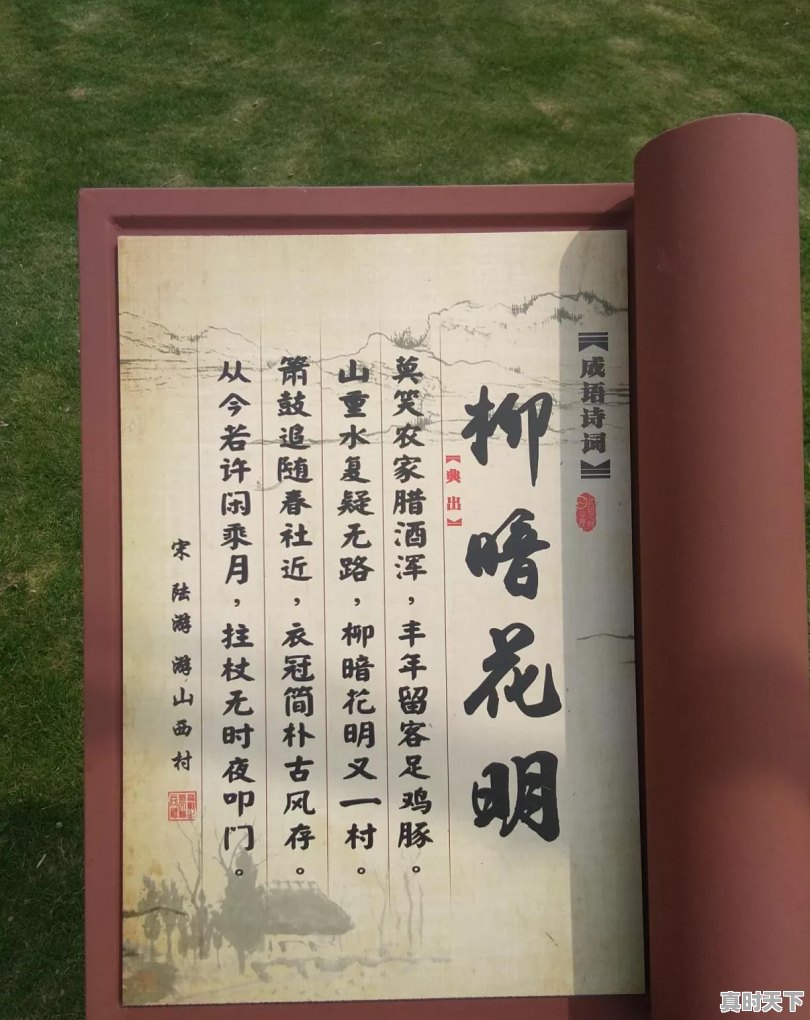 【成语诗词】
柳暗花明
【典出】
莫笑农家腊酒浑，丰年留客足鸡豚。
山重水复疑无路，柳暗花明又一村。
箫鼓追随春社近，衣冠简朴古风存。
从今若许闲乘月，拄杖无时夜叩门。
宋 陆游 游山西村
真时天下